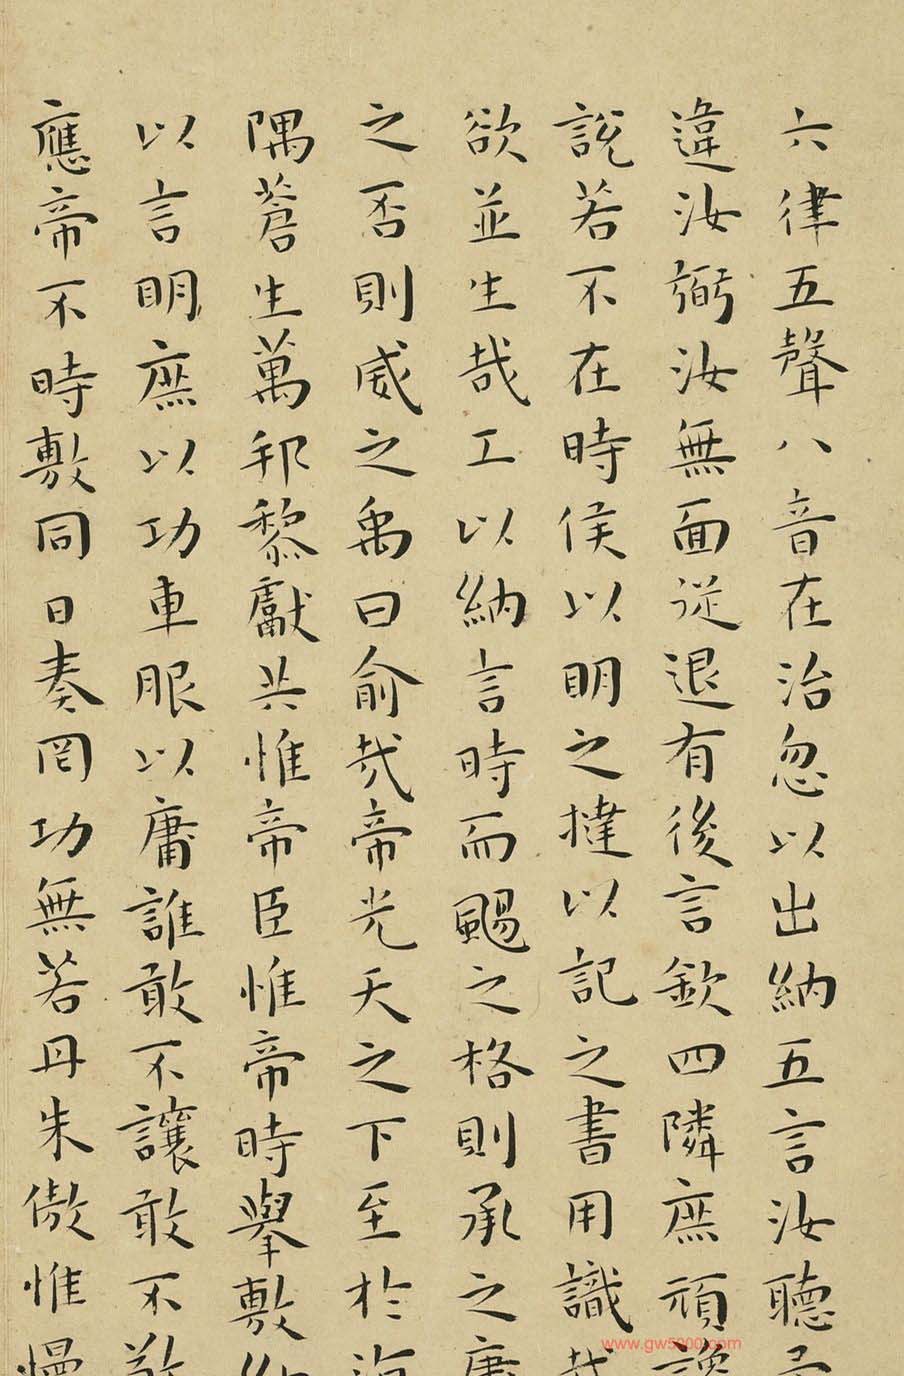 六律五聲八音在治忽以出納五言汝聽
違汝弼汝無面從退有後言欽四隣庶頑讒
說若不在時侯以明之撻以記之書用識哉
欲並生哉工以納言時而颺之格則承之庸
之否則威之禹曰俞哉帝光天之下至於海
隅蒼生萬邦黎獻共惟帝臣惟帝時舉敷納
以言明庶以功車服以庸誰敢不讓敢不敬
應帝不時敷同日奏罔功無若丹朱傲惟慢
www.gw5000.com